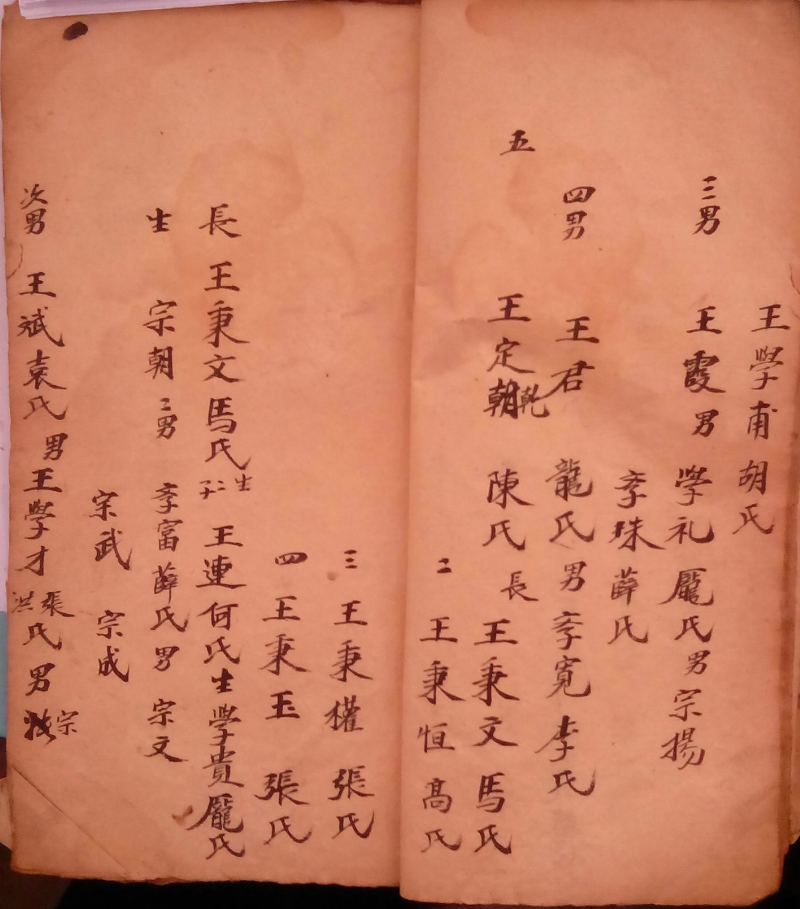 王學甫胡氏
三男 王霞男学礼龎氏男宗揚
孝珠薛氏
四男 王君 龍氏男孝寛李氏
五 王定朝乾 陳氏長王秉文馬氏
二王秉恒高氏
三王秉權張氏
四王秉玉張氏
長王秉文馬氏生子二王連何氏生學貴龎氏
生 宗朝二男孝富薛氏男宗文
宗武 宗成
次男 王斌袁氏男王學才張洪氏男宗